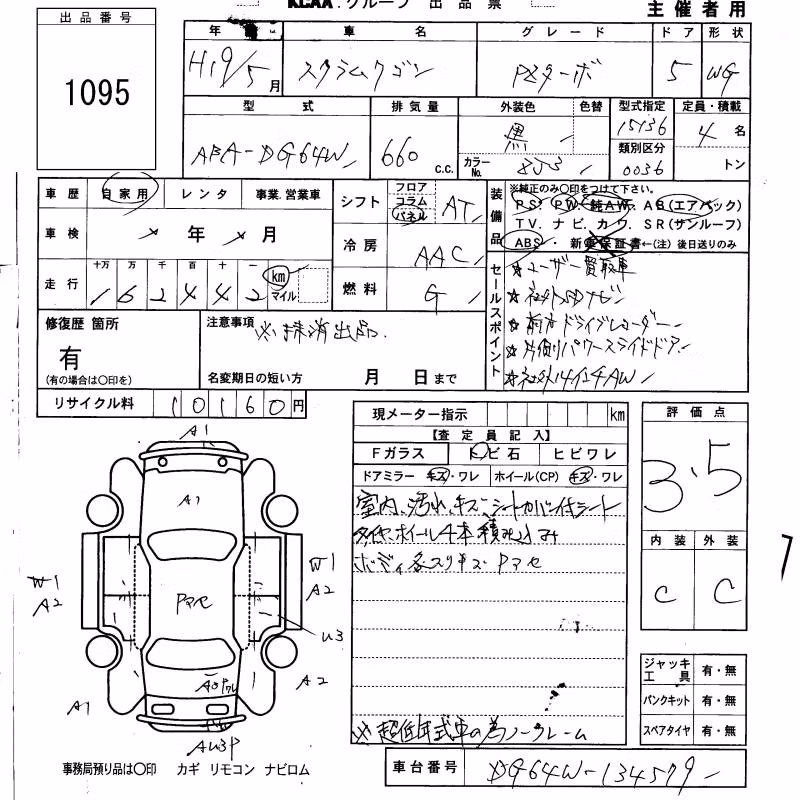 KCAA.グループ 出品票
主催者用
出品番号
1095
年 車名 グレード ドア 形状
H19/5月 スクラムワゴン PZターボ 5 WG
型式 排気量 外装色 色替 型式指定 定員・積載
ABA-DG64W 660 c.c. 黒 15136 4名
カラーNo. 8J3 類別区分 0036 トン
車歴 自家用 レンタ 事業.営業車
車検 年 月
走行 十万 万 千 百 十 一
162442 km マイル
シフト フロア コラム パネル AT
冷房 AAC
燃料 G
装備品 ※純正のみ〇印をつけて下さい。
PS. PW. 純AW. AB(エアバック)
TV. ナビ. カワ. SR(サンルーフ)
ABS・新車保証書←(注)後日送りのみ
セールスポイント
☆ユーザー買取車
☆社外SDナビ
☆前方ドライブレコーダー
☆片側パワースライドドアー
☆社外14インチAW
修復歴 箇所
有
(有の場合は〇印を)
注意事項 ※抹消出品
名変期日の短い方 月 日まで
リサイクル料 10160円
現メーター指示 km
【査定員記入】
Fガラス トビ石 ヒビワレ
ドアミラー キズ・ワレ ホイール(CP) キズ・ワレ
室内、汚れ、キズ シートカバー付シート
タイヤ、ホイール4本積み込み
ボディ各スリキズ
※超低年式車の為ノークレーム
評価点
3.5
内装 外装
C C
A1
A1
W1
A2
W1
A2
U3
A2
A1
AU3P
ジャッキ工具 有・無
パンクキット 有・無
スペアタイヤ 有・無
事務局預り品は〇印 カギ リモコン ナビロム
車台番号 DG64W-134579